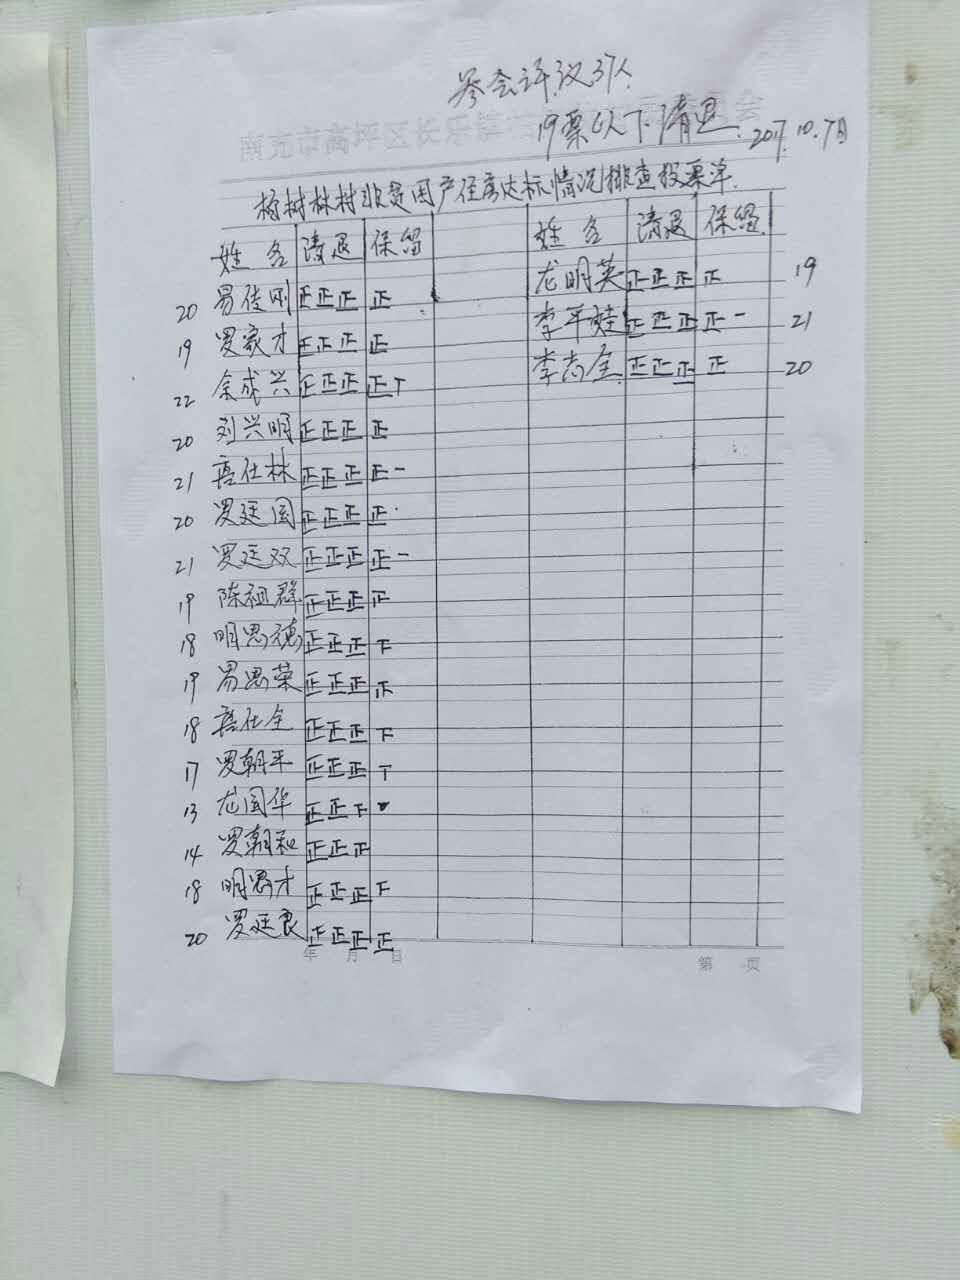 参会评议37人
南充市高坪区长乐镇
19票以下清退. 2017.10.7日
杨树林村非贫困户住房达标情况排查投票单.
姓名 清退 保留 姓名 清退 保留
20 易俊刚 正正正 正 龙明英 正正正 正 19
19 罗家才 正正正 正 李平 正正正 正一 21
22 余成兴 正正正 正丅 李志全 正正正 正 20
20 刘兴明 正正正 正
21 仕林 正正正 正一
20 罗廷国 正正正 正
21 罗廷双 正正正 正一
19 陈祖群 正正正 正
18 明思德 正正正 下
19 易思荣 正正正 正
18 仕全 正正正 下
17 罗朝平 正正正 丅
13 龙国华 正正下
14 罗朝和 正正正
18 明思才 正正正 下
20 罗廷良 正正正 正
年 月 日 第 页